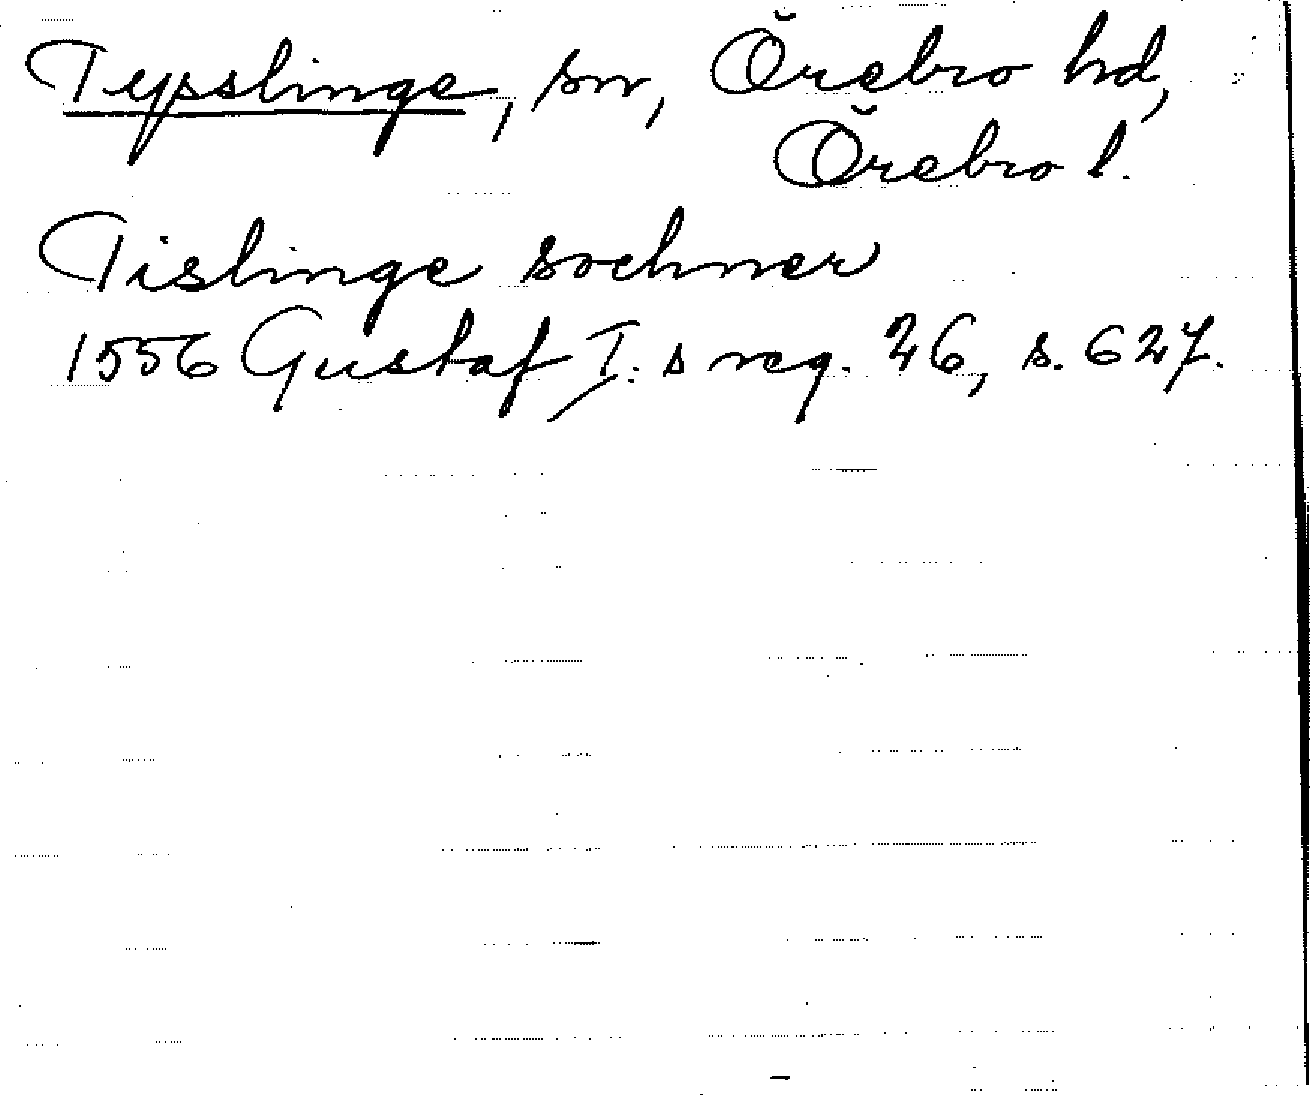 Tysslinge, sn, Örebro hd,
Örebro l.
Tislinge sochner
1556 Gustaf I:s reg. 26, s. 627.